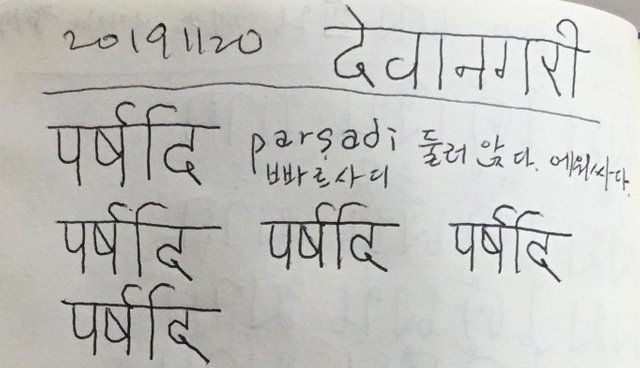 20191120 देवानगरी
पर्षदि parṣadi 둘러 앉다. 에워싸다.
빠르사디
पर्षदि पर्षदि पर्षदि
पर्षदि